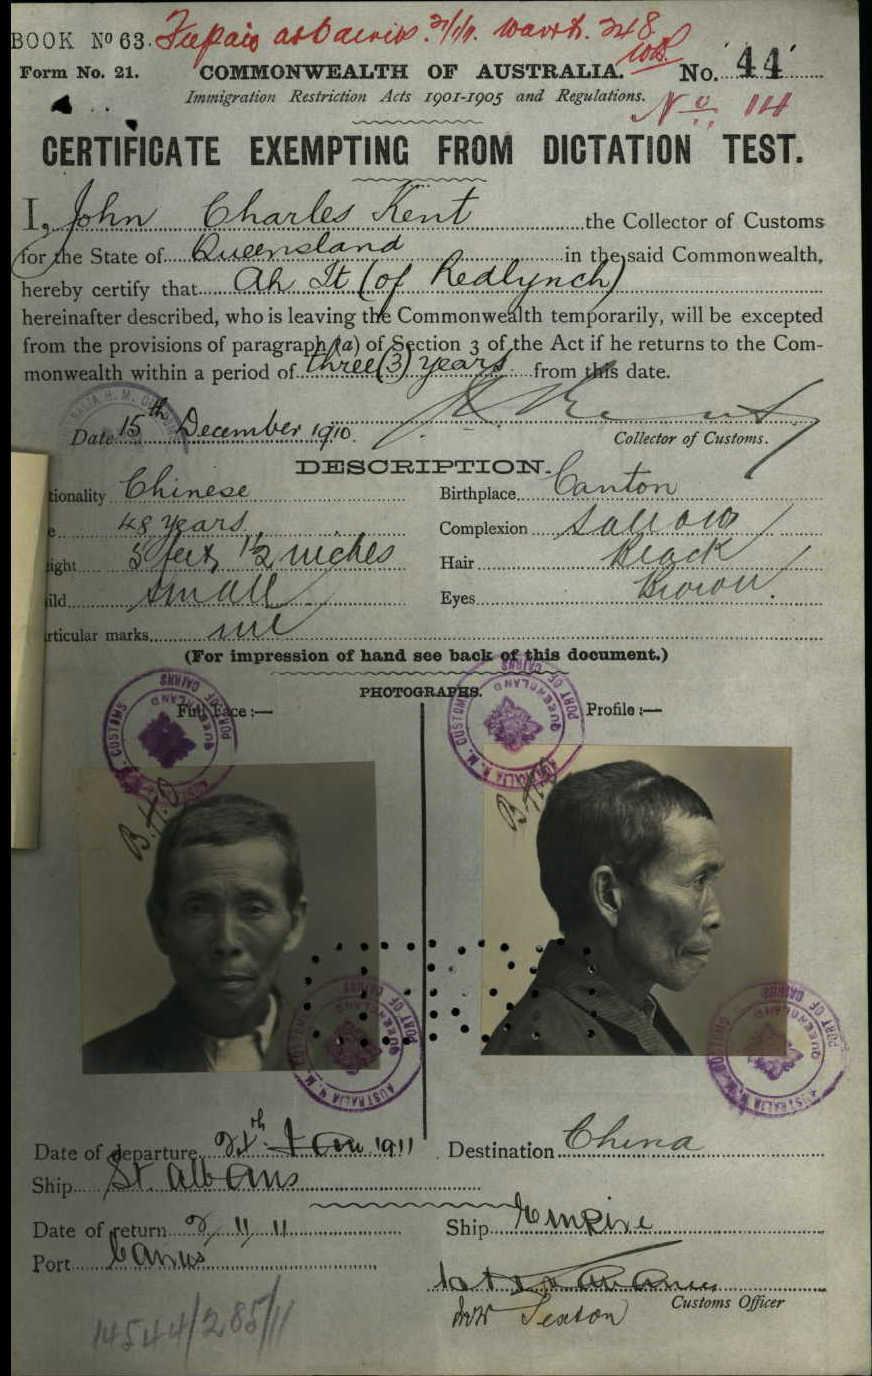 BOOK Nº 63. Fee paid at Cairns 3/1/11.
Form No. 21. COMMONWEALTH OF AUSTRALIA. No. 44
Immigration Restriction Acts 1901-1905 and Regulations. Nº
CERTIFICATE EXEMPTING FROM DICTATION TEST.
I, John Charles Kent the Collector of Customs
for the State of Queensland in the said Commonwealth,
hereby certify that Ah It (of Redlynch)
hereinafter described, who is leaving the Commonwealth temporarily, will be excepted
from the provisions of paragraph (a) of Section 3 of the Act if he returns to the Com-
monwealth within a period of three (3) years from this date.
Date 15th December 1910.
Collector of Customs.
DESCRIPTION.
tionality Chinese Birthplace Canton
e 48 years Complexion Sallow
ight 5 feet 1½ inches Hair Black
ild Small Eyes Brown.
rticular marks nil
(For impression of hand see back of this document.)
PHOTOGRAPHS.
Full Face:— Profile:—
PORT OF CAIRNS
QUEENSLAND
AUSTRALIA H. M. CUSTOMS
B.H.D B.H.D
PORT OF CAIRNS
QUEENSLAND
AUSTRALIA H. M. CUSTOMS
Date of departure Jan 1911 Destination China
Ship St. Albans
Date of return 2/11/11 Ship Empire
Port Cairns
Customs Officer
Sexton
14544/285/11